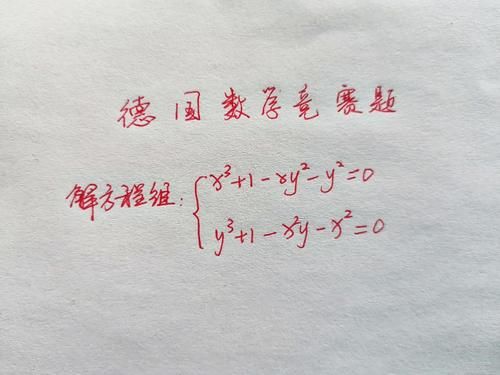 德国数学竞赛题
解方程组: { x³+1-xy²-y²=0
y³+1-x²y-x²=0